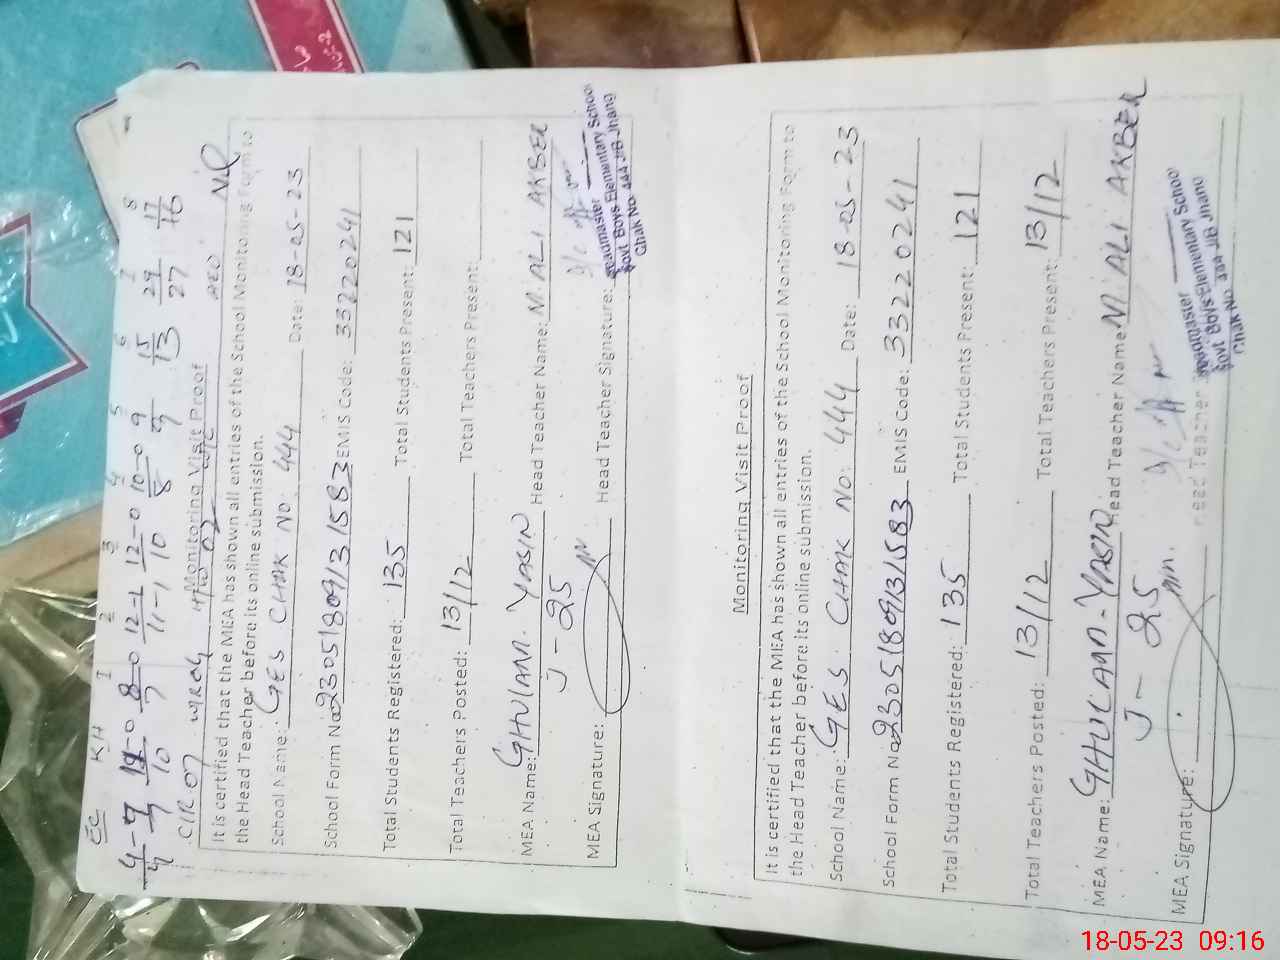 EC KH 1 2 3 4 5 6 7 8
4-9 11-0 8-0 12-1 12-0 10-0 9 15 29 17
4 9 10 7 11-1 10 8 9 13 27 16
CIR 07 AEO Nil
Monitoring Visit Proof
It is certified that the MEA has shown all entries of the School Monitoring Form to
the Head Teacher before its online submission.
School Name: GES CHAK NO. 444 Date: 18-05-23
School Form No: 23051809131583 EMIS Code: 33220241
Total Students Registered: 135 Total Students Present: 121
Total Teachers Posted: 13/12 Total Teachers Present:
MEA Name: GHULAM-YASIN Head Teacher Name: M. ALI AKBER
J-25
MEA Signature: Head Teacher Signature:
Headmaster
Govt Boys Elementary School
Chak No. 444 J/B Jhang
Monitoring Visit Proof
It is certified that the MEA has shown all entries of the School Monitoring Form to
the Head Teacher before its online submission.
School Name: GES. CHAK NO. 444 Date: 18-05-23
School Form No: 23051809131583 EMIS Code: 33220241
Total Students Registered: 135 Total Students Present: 121
Total Teachers Posted: 13/12 Total Teachers Present: 13/12
MEA Name: GHULAM-YASIN Head Teacher Name: M. ALI AKBER
J-25
MEA Signature: Head Teacher
Headmaster
Govt Boys Elementary School
Chak No. 444 J/B Jhang
18-05-23 09:16